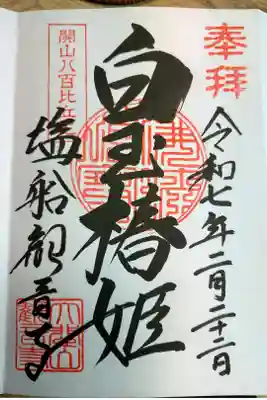 奉拝
令和七年二月二十二日
白玉椿姫
開山八百比丘尼
塩船観音寺